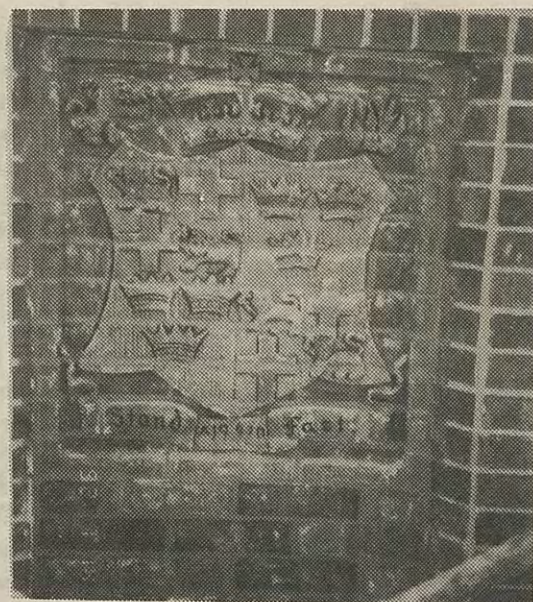 Stand Fast